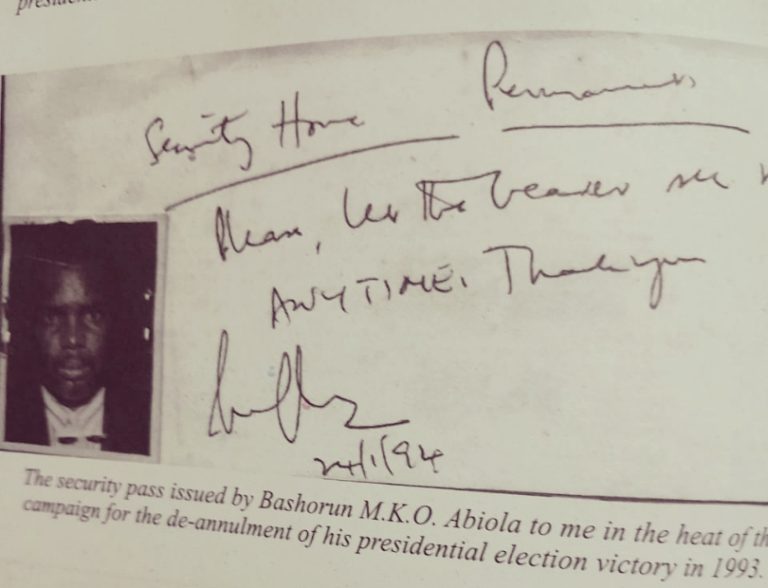 presiden
Security Home Permanent
Please, let the bearer see
ANYTIME. Thank you
24/1/94
The security pass issued by Bashorun M.K.O. Abiola to me in the heat of th
campaign for the de-annulment of his presidential election victory in 1993.